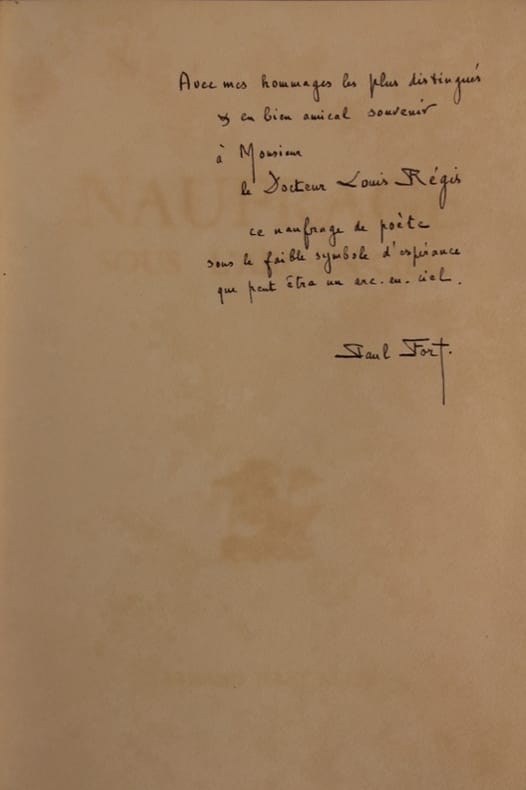 Avec mes hommages les plus distingués
& en bien amical souvenir
à Monsieur
le Docteur Louis Régis
ce naufrage de poète
sous le faible symbole d'espérance
que peut être un arc-en-ciel.
Paul Fort.
NAUFRAGE
SOUS